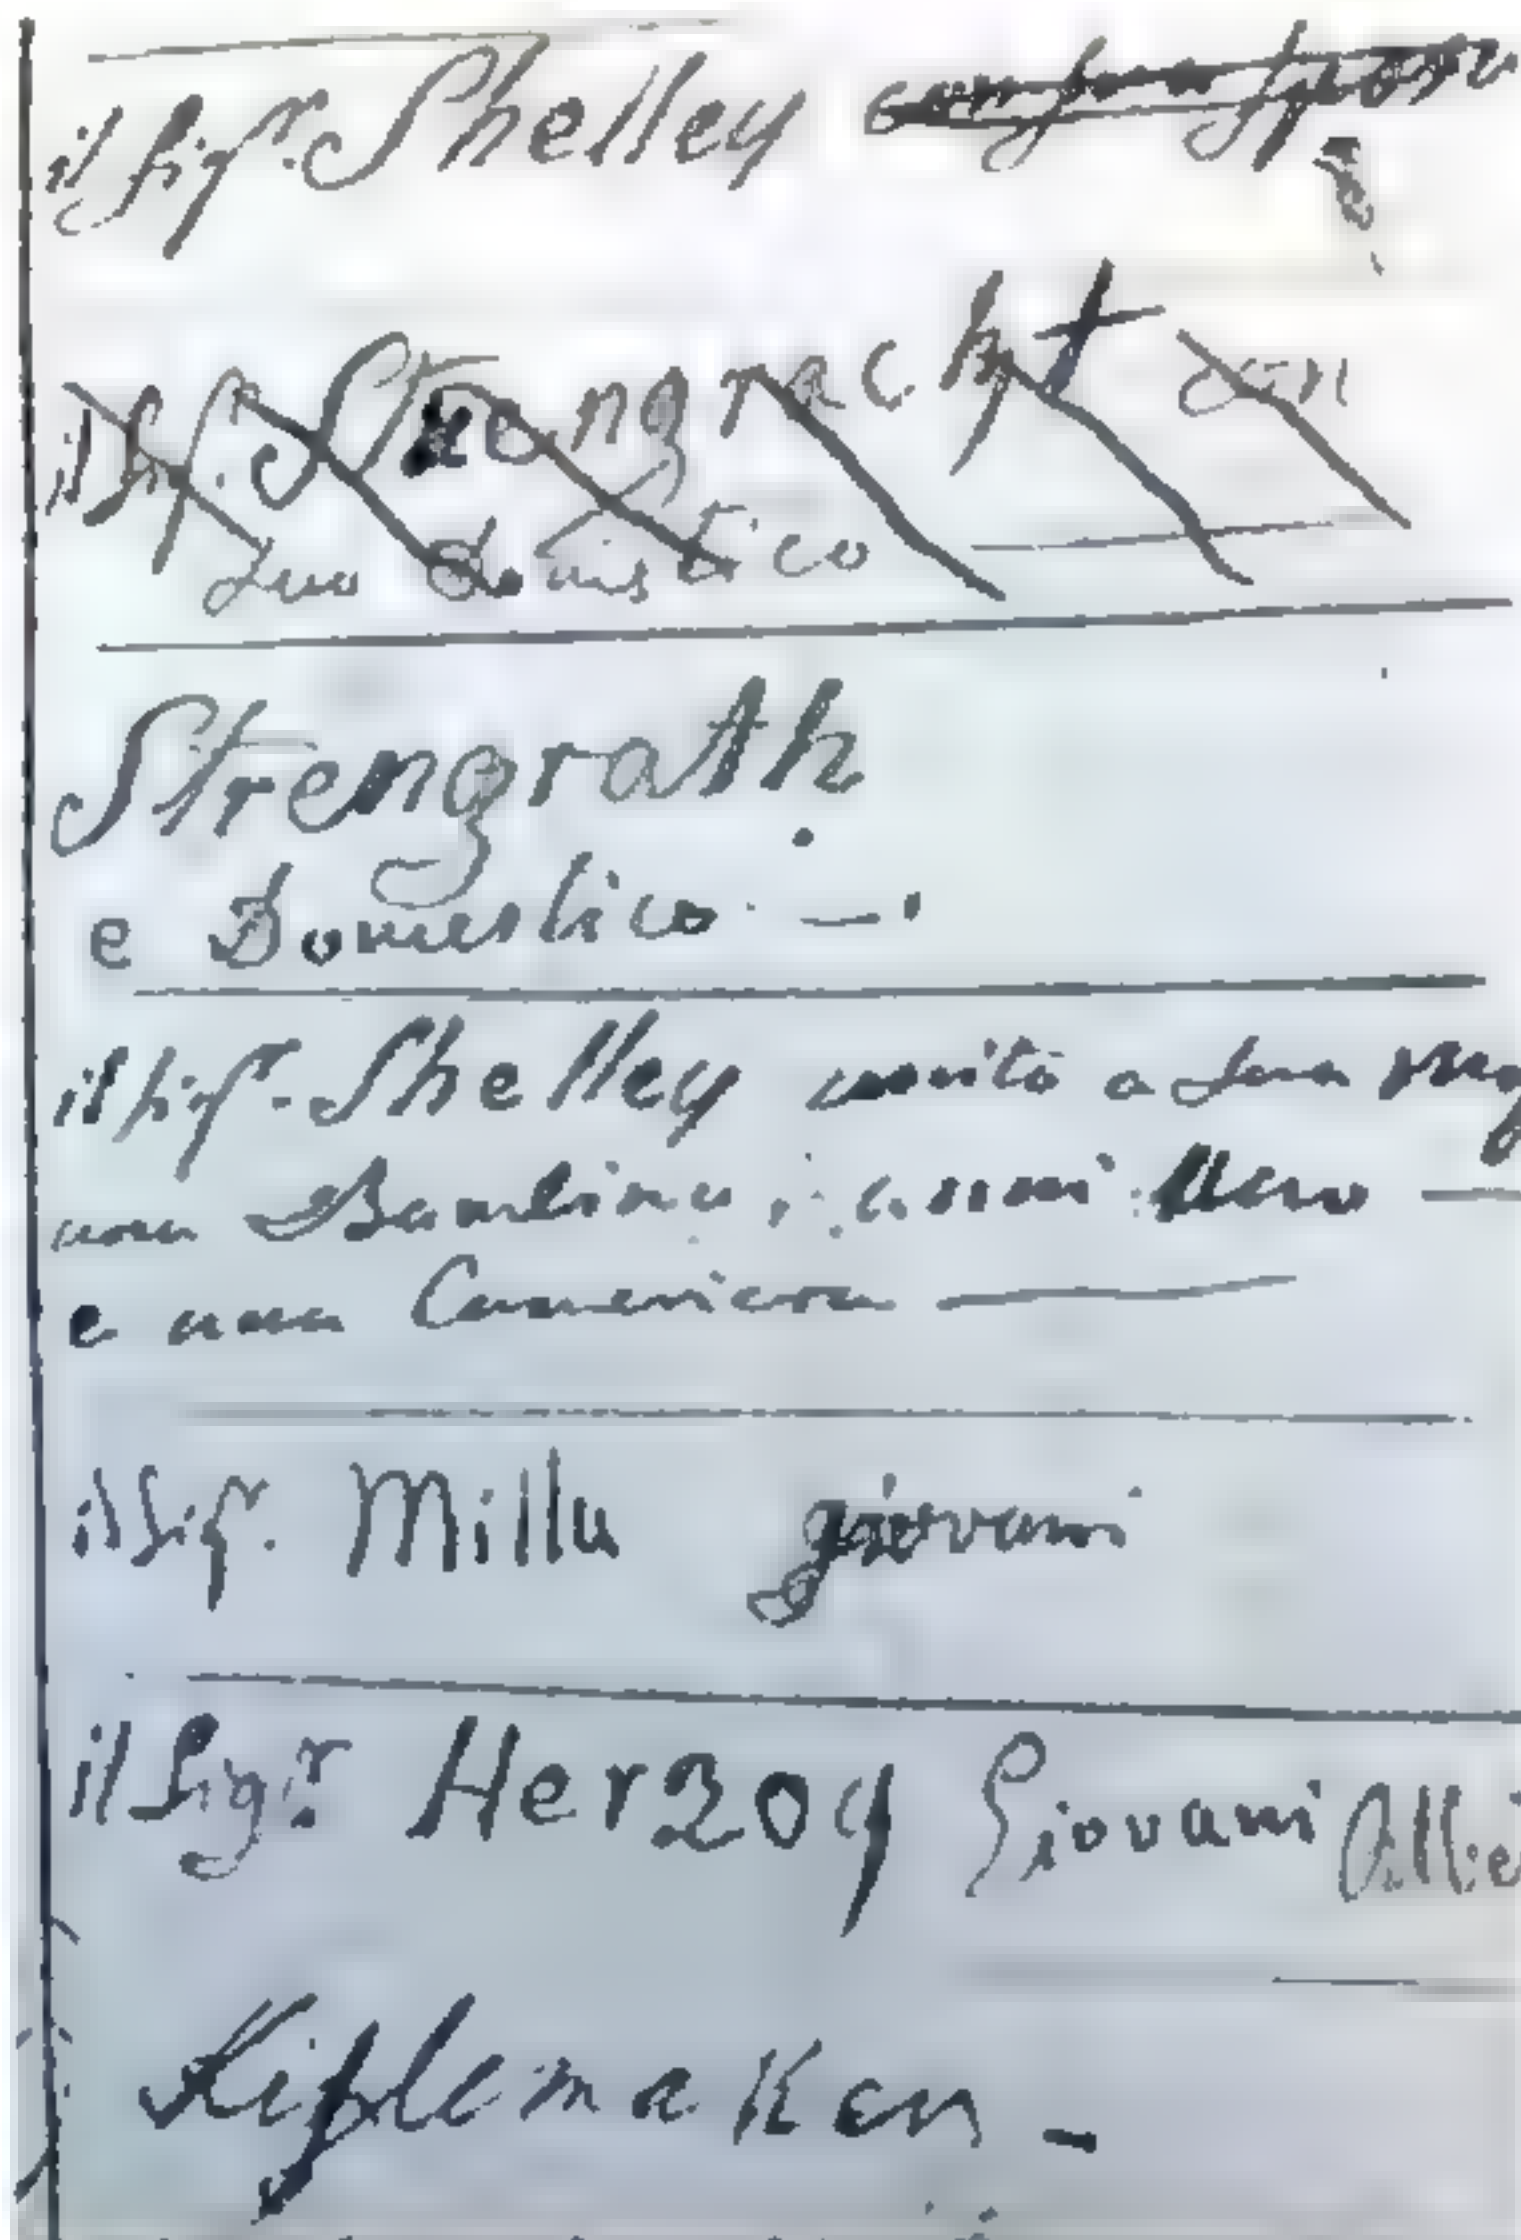 il Sigr. Shelley con sua sposa
il Sigr. Strengracht con
suo domestico
Strengrath
e Domestico
il Sigr. Shelley unito a sua
una Bambina, anni
e una Cameriera
il Sigr. Millu giovani
il Sigr. Herzog Giovani
Kiplemaken